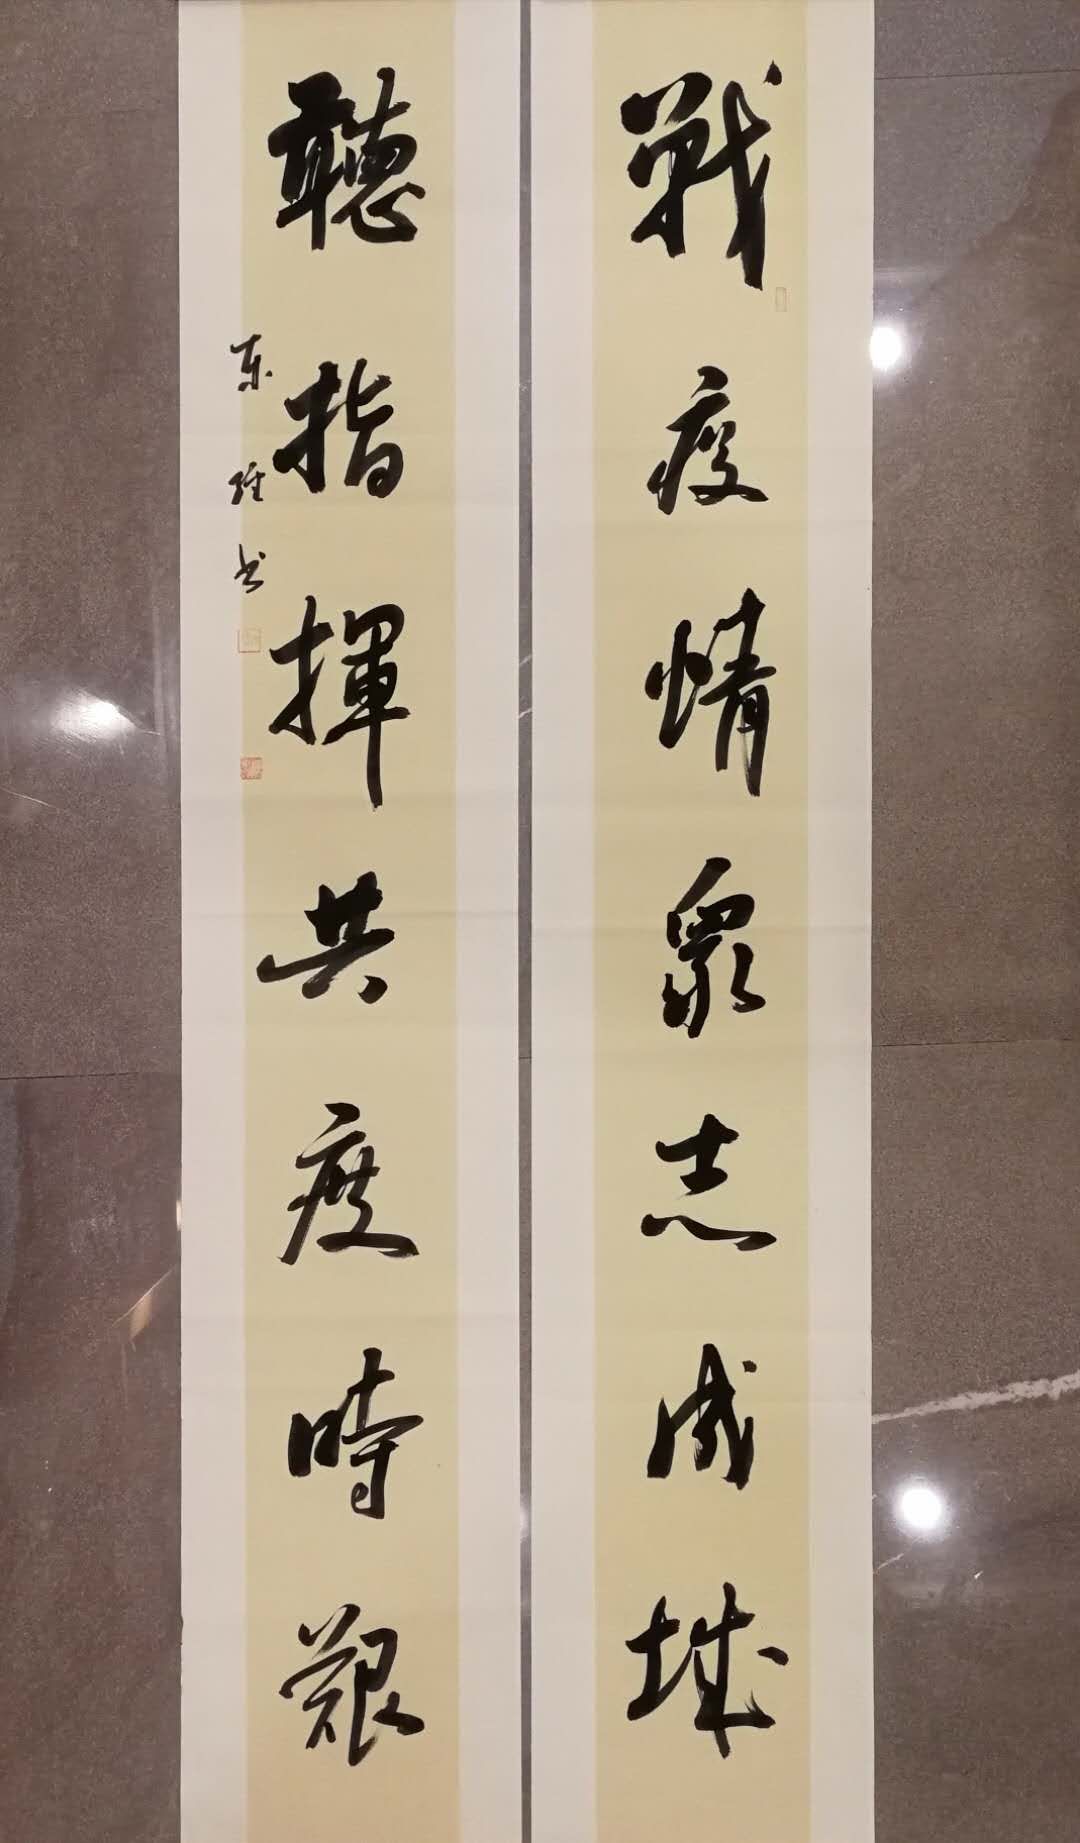 戰疫情眾志成城
聽指揮共度時艱
东維书